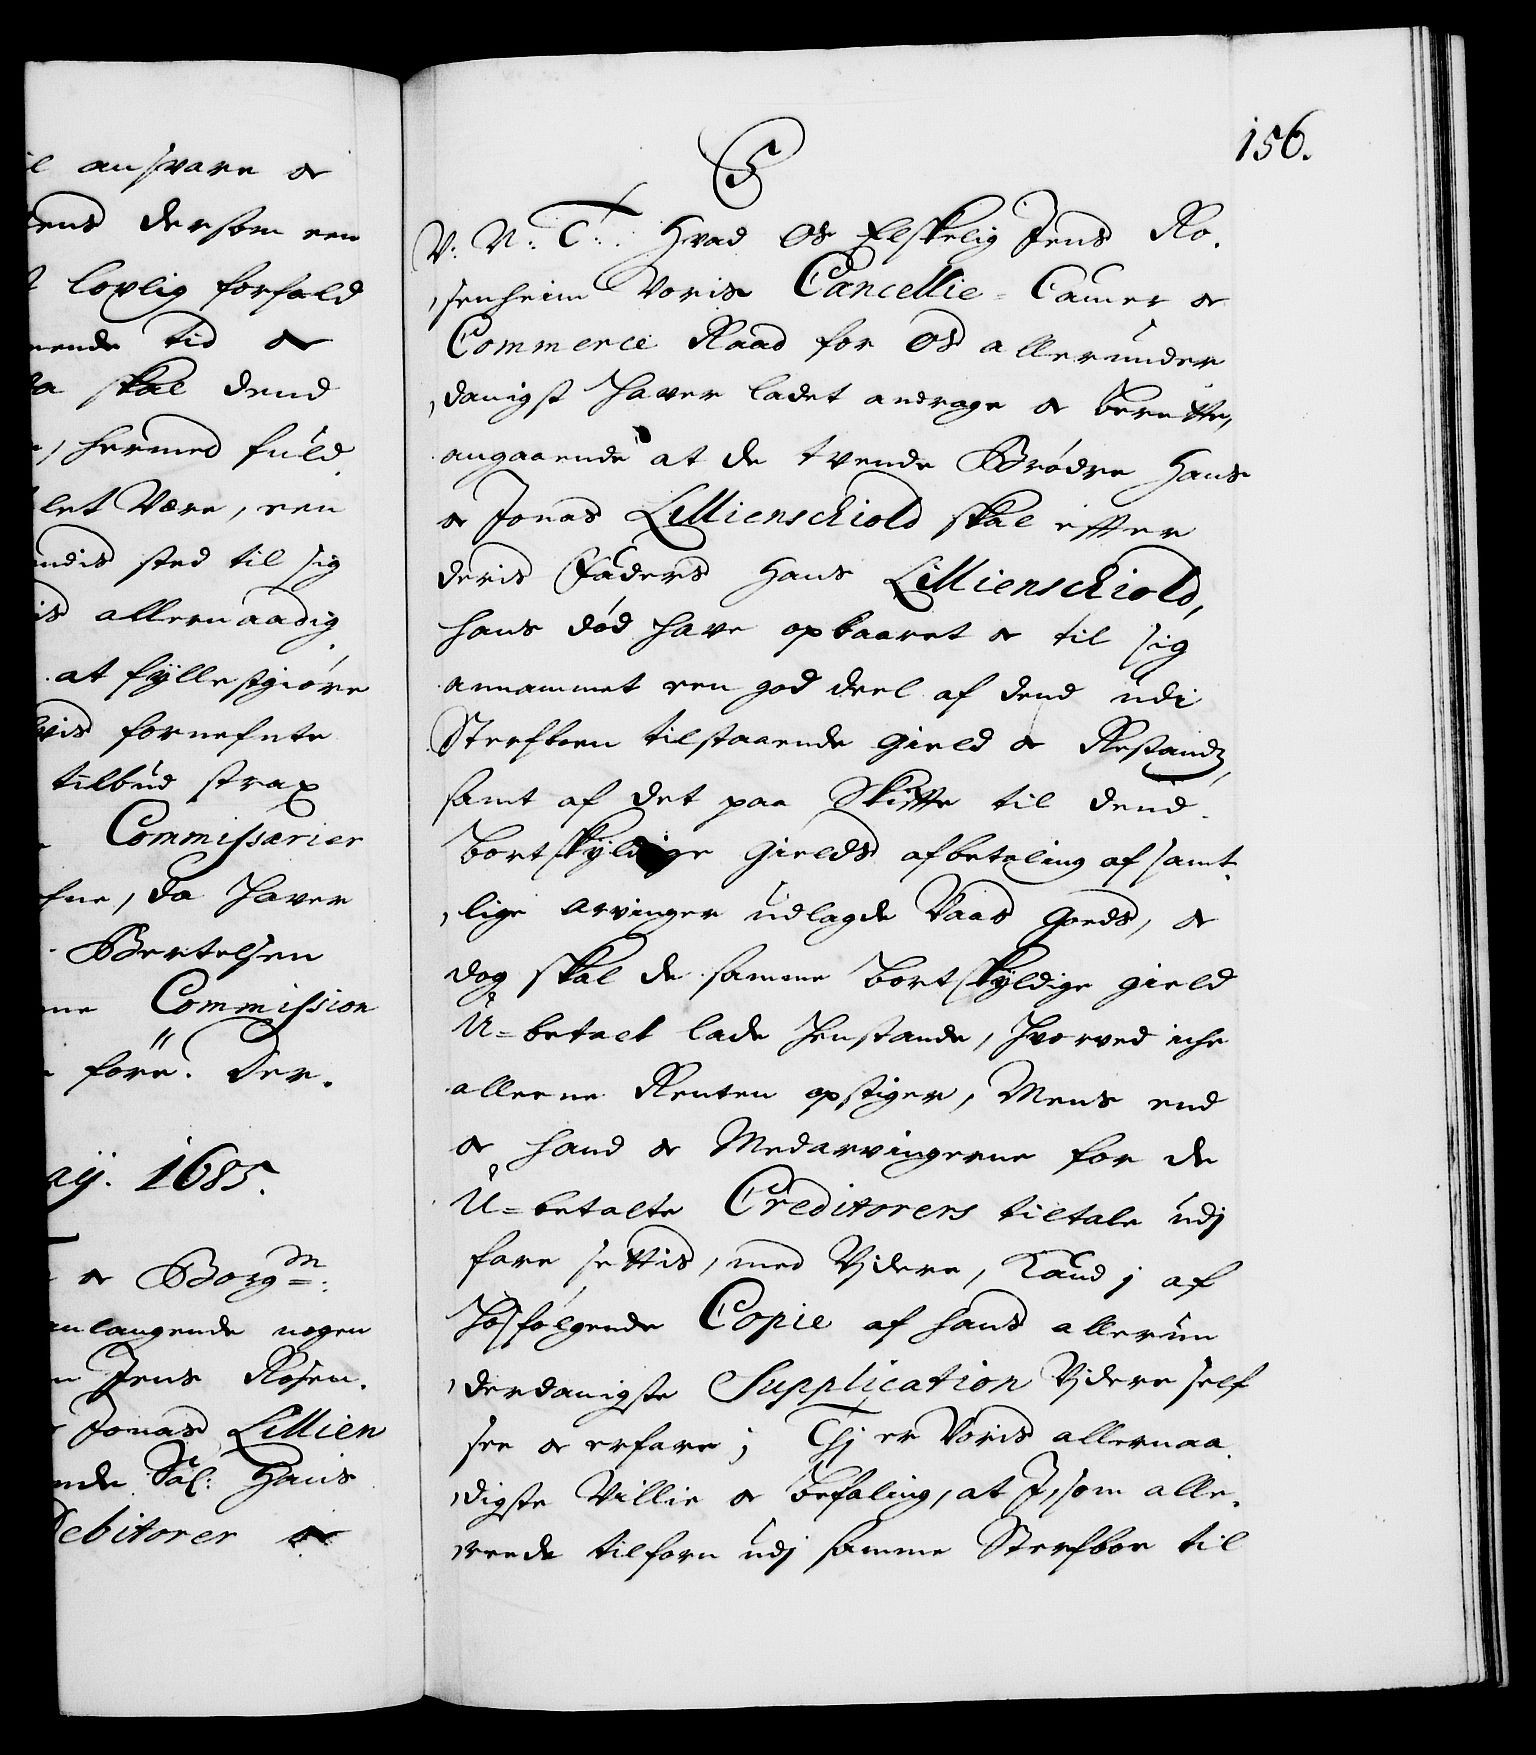 ansvare &
dersom een
lovlig forfald
tid &
skal dend
, hermed fuld
let Være, een
sted til sig
allernaadig
at fyllestgiøre
fornefnte
tilbud strax
Commissarier
, da haver
Bertelsen
Commission
føre. Der.
1685.
& Borgm:
anlangende nogen
Jens Rosen.
Jonas Lillien
Sal: Hans
Debitorer &
156.
V: N: T: Hvad Os Elskelig Jens Ro.
,senheim Voris Cancellie= Camer &
Commerce Raad for Os allerunder
,danigst haver ladet andrage & berette,
angaaende at de tvende Brødre Hans
& Jonas Lillienschiold skal effter
deris Faders Hans Lillienschiold,
hans død have opbaaret & til sig
annammet een god deel af dend udi
Sterfboen tilstaaende gield & Restands,
samt af det paa Skiffte til dend
bortskyldige Gields afbetaling af samt.
,lige arvinger udlagde Vaas Goeds, &
dog skal de samme bortskyldige gield
U=betalt lade henstande, hvorved iche
alleene Renten opstiger, Mens end
& hand & Medarvingerne for de
U=betalte Creditorers tiltale udj
fare settis, med Videre, Kand j af
hosfølgende Copie af hans allerun
,derdanigste Supplication Videre self
see & erfare; Thj er Voris allernaa
,digste Villie & befaling, at I, som alle.
,reede tilforn udj samme Sterfboe til